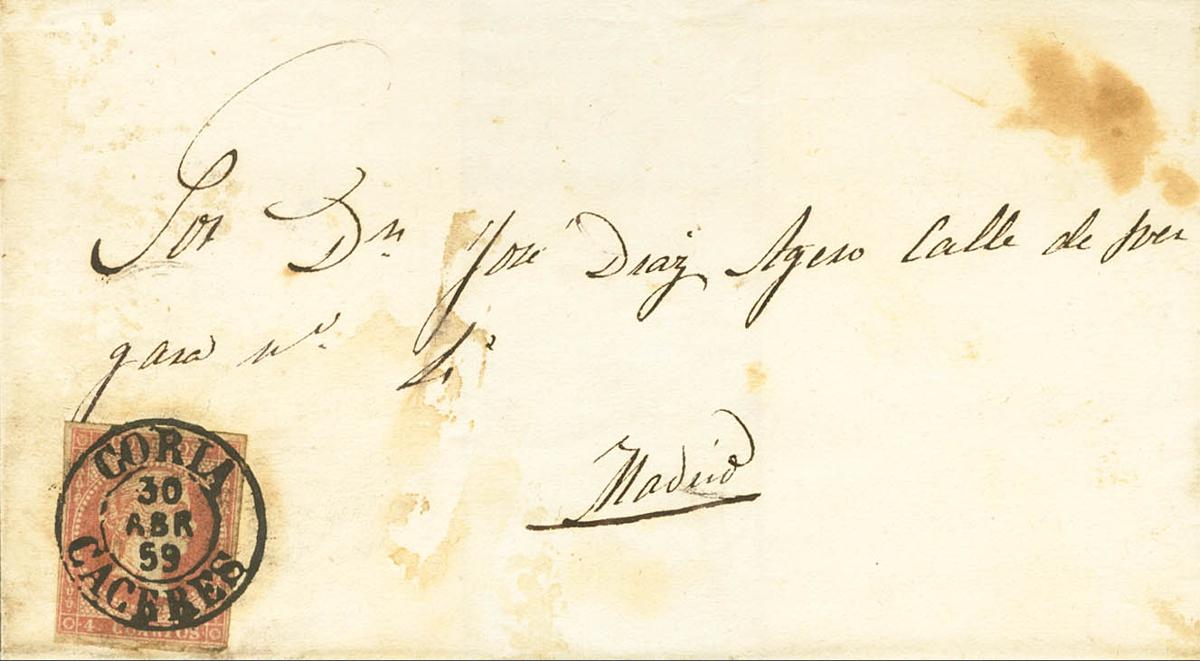 Sor Dn José Diaz Agero Calle de Ver
gara nº 4º
Madrid
CORIA
30
ABR
59
CACERES
4 CUARTOS